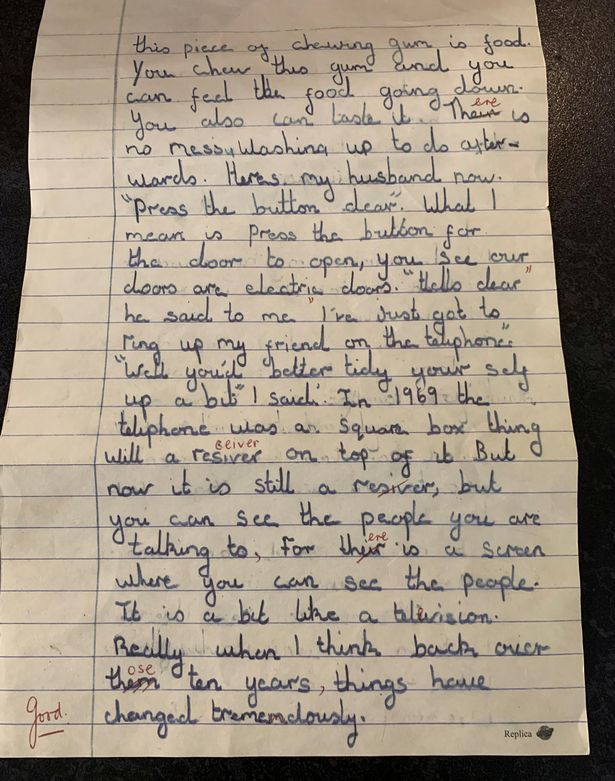 this piece of chewing gum is food.
You chew this gum and you
can feel the food going down.
You also can taste it. Their ere is
no messy Washing up to do after-
wards. Heres my husband now.
"Press the button dear". What I
mean is Press the button for
the door to open, you see our
doors are electric doors. "Hello dear"
he said to me "I've Just got to
ring up my friend on the telephone"
"Well you'd better tidy your self
up a bit" I said. In 1969 the
telephone was a square box thing
will a resiver ceiver on top of it But
now it is still a resiver, but
you can see the people you are
talking to, for their ere is a screen
where you can see the people.
It is a bit like a television.
Really when I think back over
them ose ten years, things have
Good. changed tremendously.
Replica